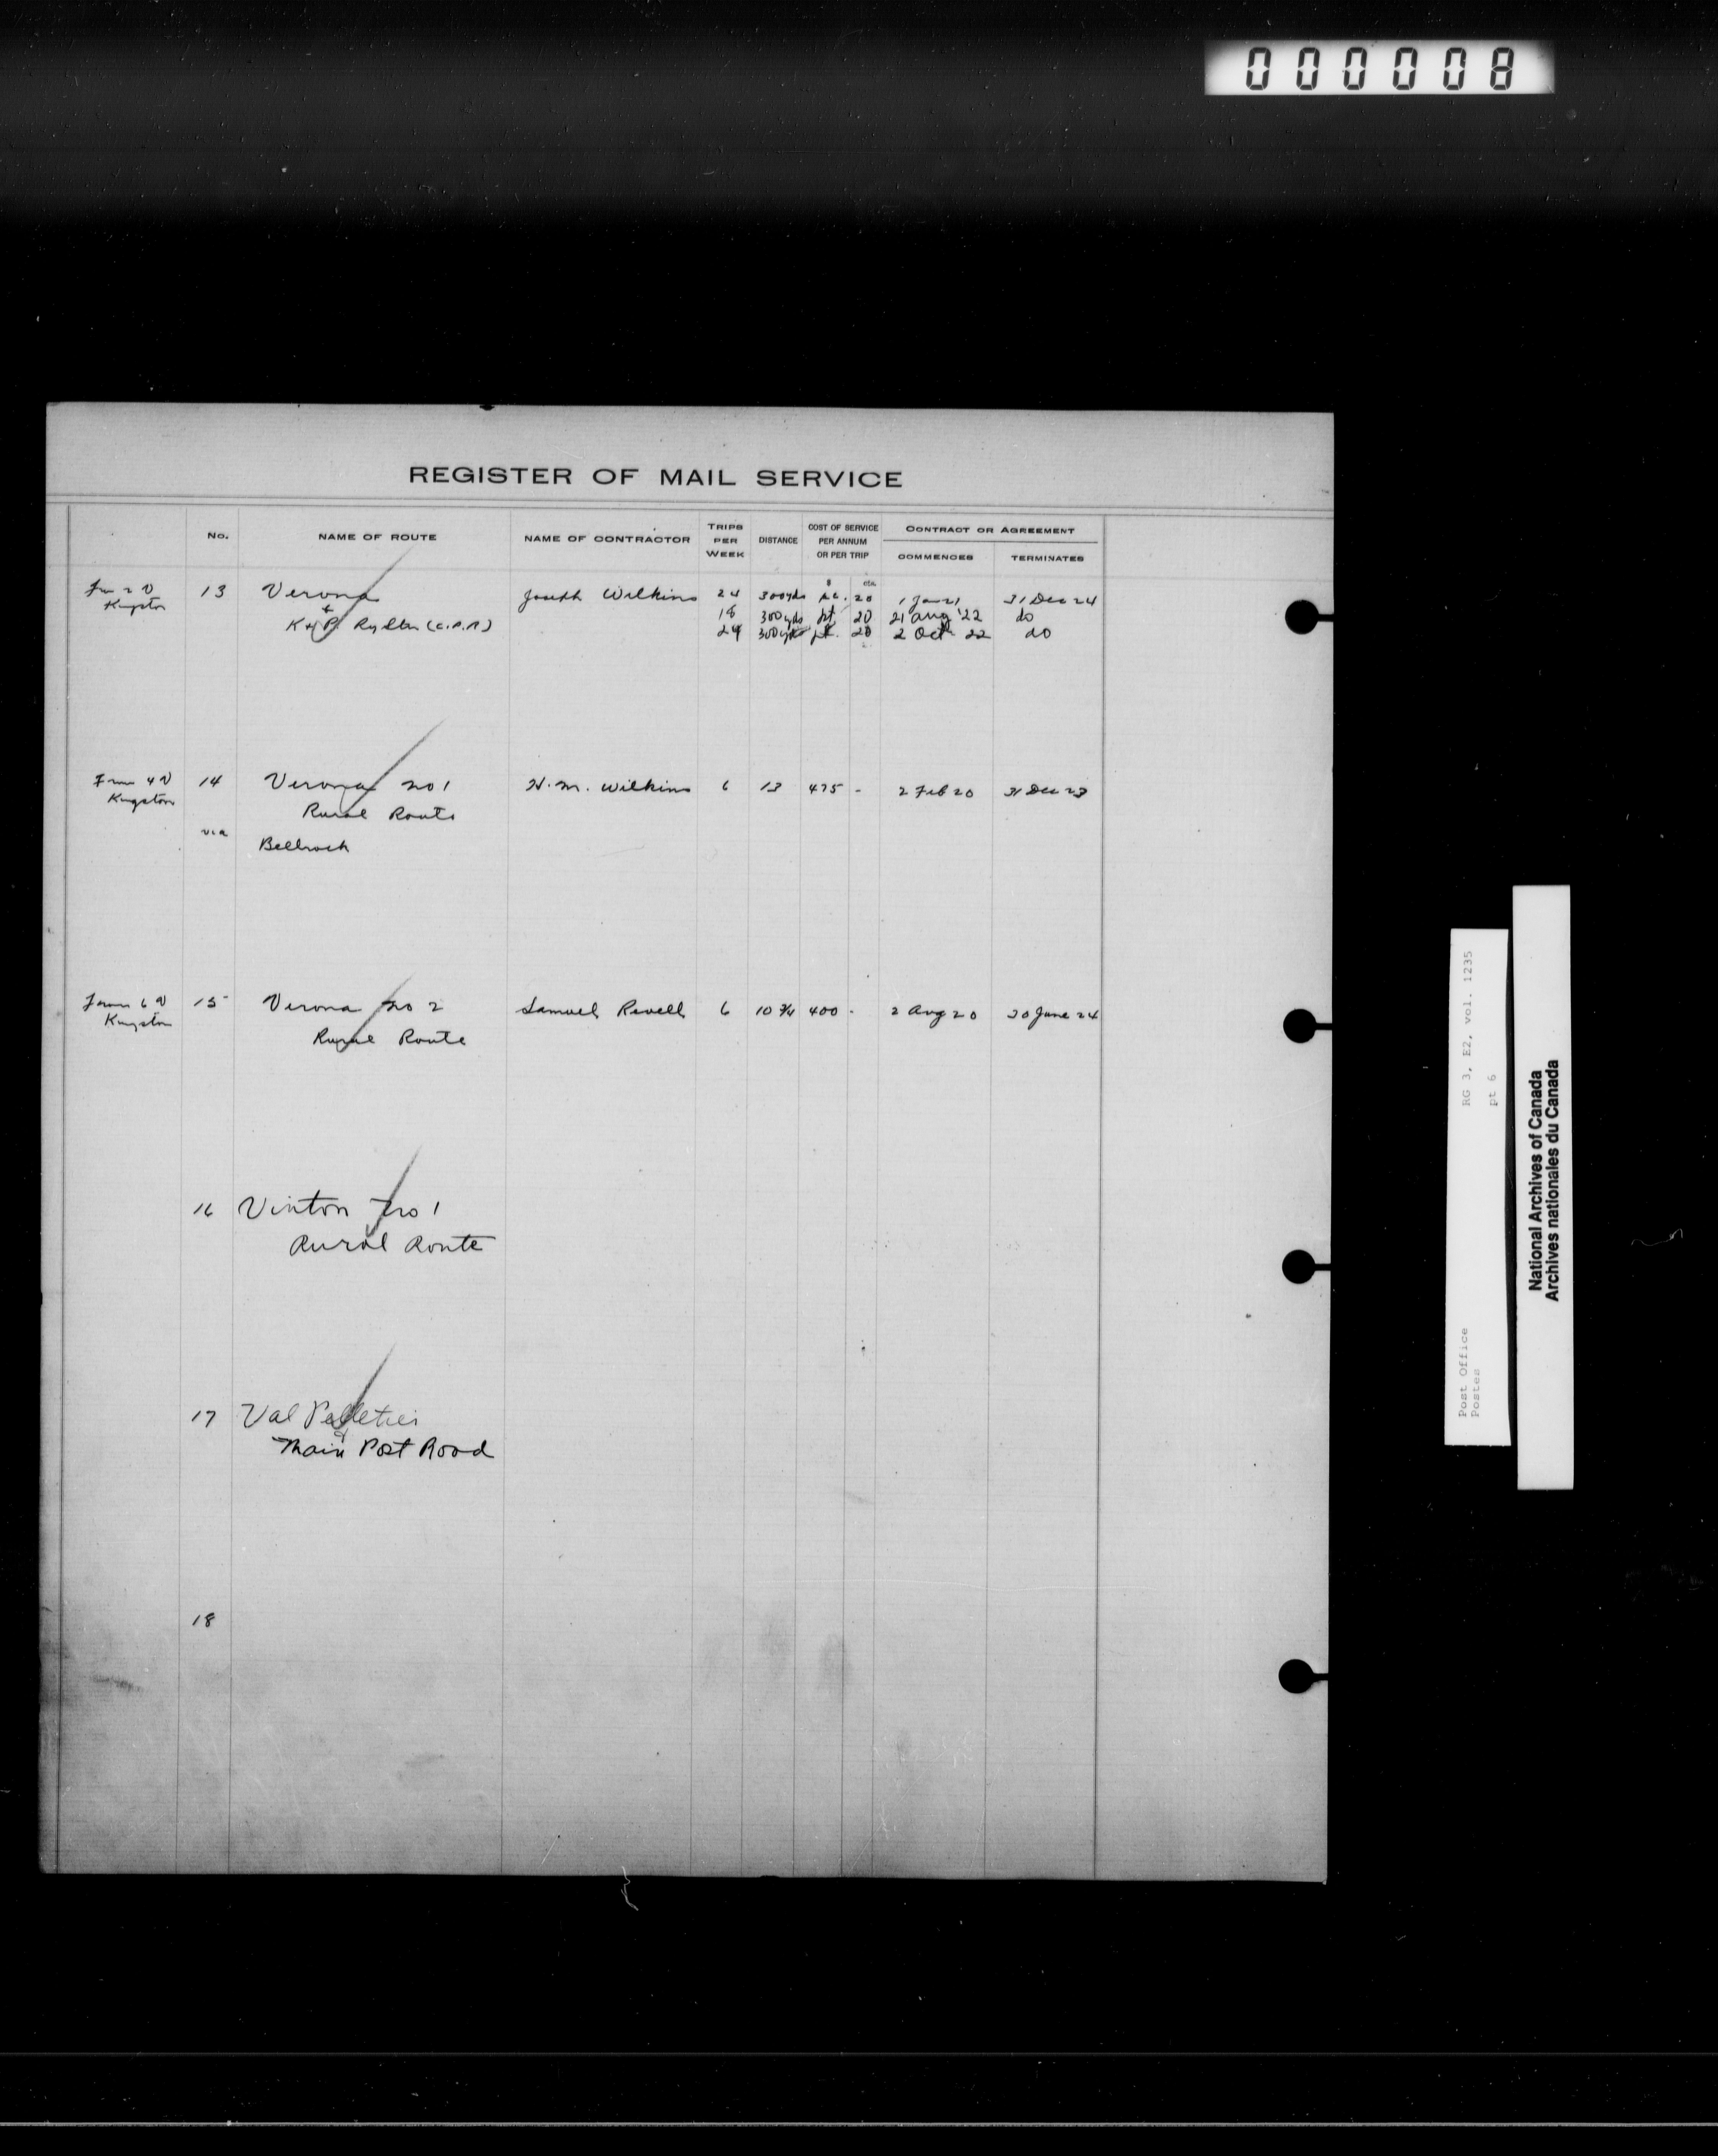 000008
REGISTER OF MAIL SERVICE
No. NAME OF ROUTE NAME OF CONTRACTOR TRIPS PER WEEK DISTANCE COST OF SERVICE PER ANNUM OR PER TRIP CONTRACT OR AGREEMENT
COMMENCES TERMINATES
$ cts.
13 Verona Joseph Wilkins 24 300yds 20 1 Jan 21 31 Dec 24
Kingston
&
18 300yds pt 20 21 Aug '22 do
K & P. Ry Stn (C.P.R)
24 300yds pt. 20 2 Oct 22 do
From 4 V 14 Verona No 1 H. M. Wilkins 6 13 475 - 2 Feb 20 31 Dec 23
Kingston Rural Route
via Bellrock
From 6 V 15 Verona No 2 Samuel Revell 6 10 3/4 400 - 2 Aug 20 30 June 24
Kingston Rural Route
16 Vinton No 1
Rural Route
17 Val Pelletier
&
Main Post Road
18
RG 3, E2, vol. 1235
pt 6
Post Office
Postes
National Archives of Canada
Archives nationales du Canada